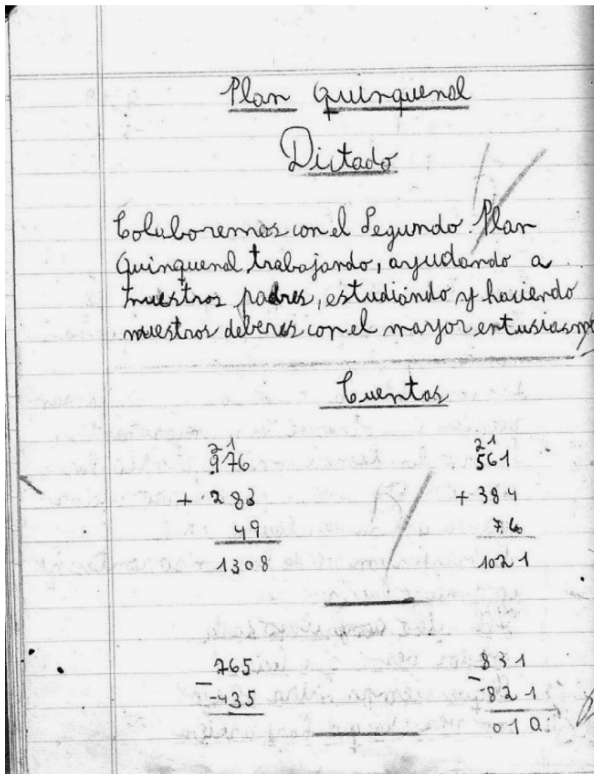 Plan Quinquenal
Dictado
Colaboremos con el Segundo Plan
Quinquenal, trabajando, ayudando a
nuestros padres, estudiando y haciendo
nuestros deberes con el mayor entusiasmo
Cuentas
21 21
976 561
+ 283 + 384
49 76
1308 1021
765 831
- 435 - 821
010